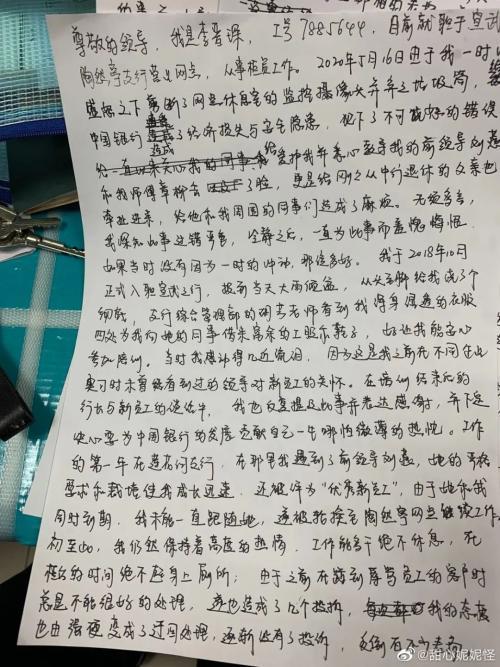 尊敬的领导，我是李晋课，工号7885644，目前就职于宣武
陶然亭支行营业网点，从事柜员工作。2020年5月16日由于我一时
盛怒之下掰断了网点休息室的监控摄像头并弃之垃圾筒，
中国银行造成了经济损失与安全隐患，犯下了不可饶恕的错误
给一直以来关心我的同事和给爱护我并悉心教导我的前领导刘
和我师傅章柳 了脸，更是给刚刚从中行退休的父亲也
牵扯进来，给他和我周围的同事们造成了麻烦。无须多言，
我深知此事之错严重，冷静之后，一直为此事而羞愧悔恨
如果当时没有因为一时的冲动，那该多好。我于2018年10月
正式入职宣武支行，报到当天大雨倾盆，从头到脚给我浇了个
细软，支行综合管理部的胡 老师看到我浑身湿透的衣服
四处为我向她的同事借来富余的工服衣鞋子，好让我能安心
参加培训。当时我感动得几近流泪，因为这是我之前在不同企业
实习时未曾能看到过的领导对新员工的关怀。在培训结束后的
行长与新员工的谈话中，我也反复提及此事并表达感谢，并下定
决心要为中国银行的发展贡献自己一生哪怕微薄的热忱。工作
的第一年在莲花河支行，在那里我遇到了前领导刘 ，她的严格
要求和栽培使我成长迅速，还被评为“优秀新员工”，由于她和我
同时到期，我不能一直跟随她，遂被轮换至陶然亭网点继续工作。
初至此，我仍然保持着高度的热情，工作能多干绝不休息，无
柜台的时间绝不起身上厕所；由于之前在碰到辱骂员工的客户时
总是不能很好的处理，遂也造成了几个投诉，我的态度
也由强硬变成了迂回处理，逐渐没有了投诉，
@甜心妮妮怪